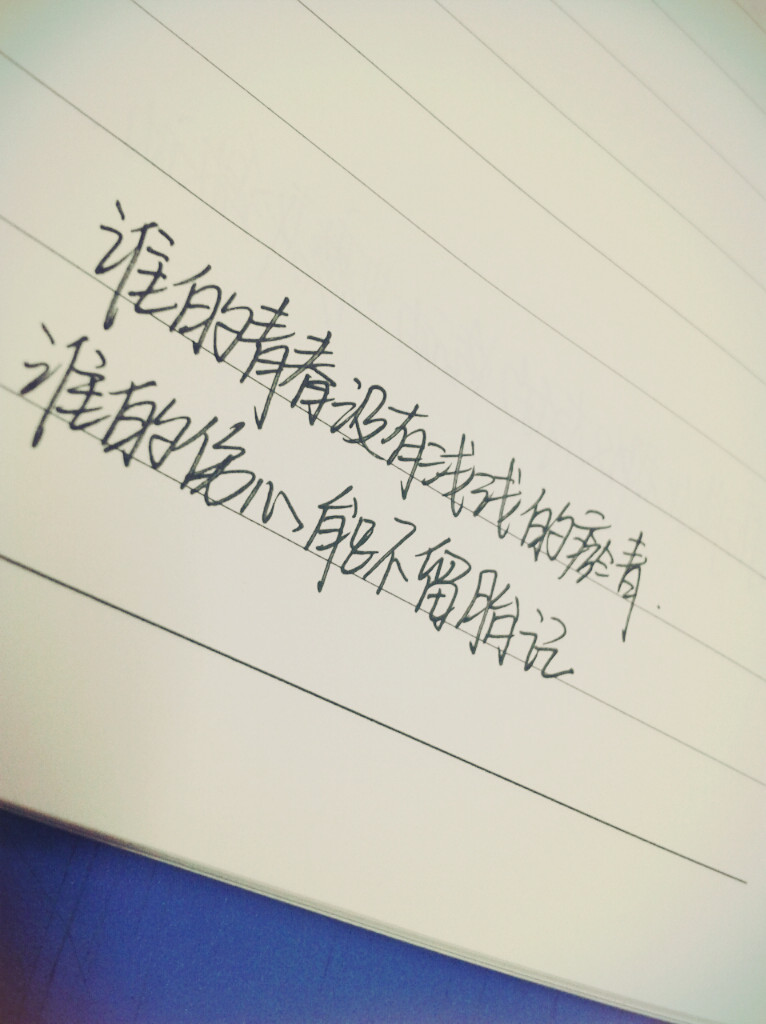 谁的青春没有浅浅的瘀青.
谁的伤心能不留胎记